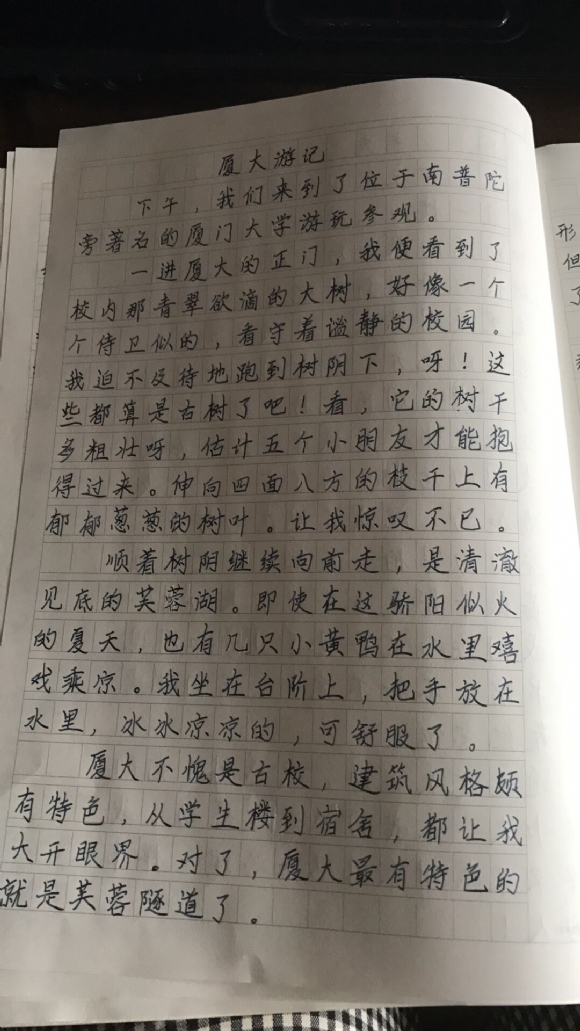 厦大游记
下午，我们来到了位于南普陀
旁著名的厦门大学游玩参观。
一进厦大的正门，我便看到了
校内那青翠欲滴的大树，好像一个
个侍卫似的，看守着谧静的校园。
我迫不及待地跑到树阴下，呀！这
些都算是古树了吧！看，它的树干
多粗壮呀，估计五个小朋友才能抱
得过来。伸向四面八方的枝干上有
郁郁葱葱的树叶。让我惊叹不已。
顺着树阴继续向前走，是清澈
见底的芙蓉湖。即使在这骄阳似火
的夏天，也有几只小黄鸭在水里嬉
戏乘凉。我坐在台阶上，把手放在
水里，冰冰凉凉的，可舒服了。
厦大不愧是古校，建筑风格颇
有特色，从学生楼到宿舍，都让我
大开眼界。对了，厦大最有特色的
就是芙蓉隧道了。
形
但
了